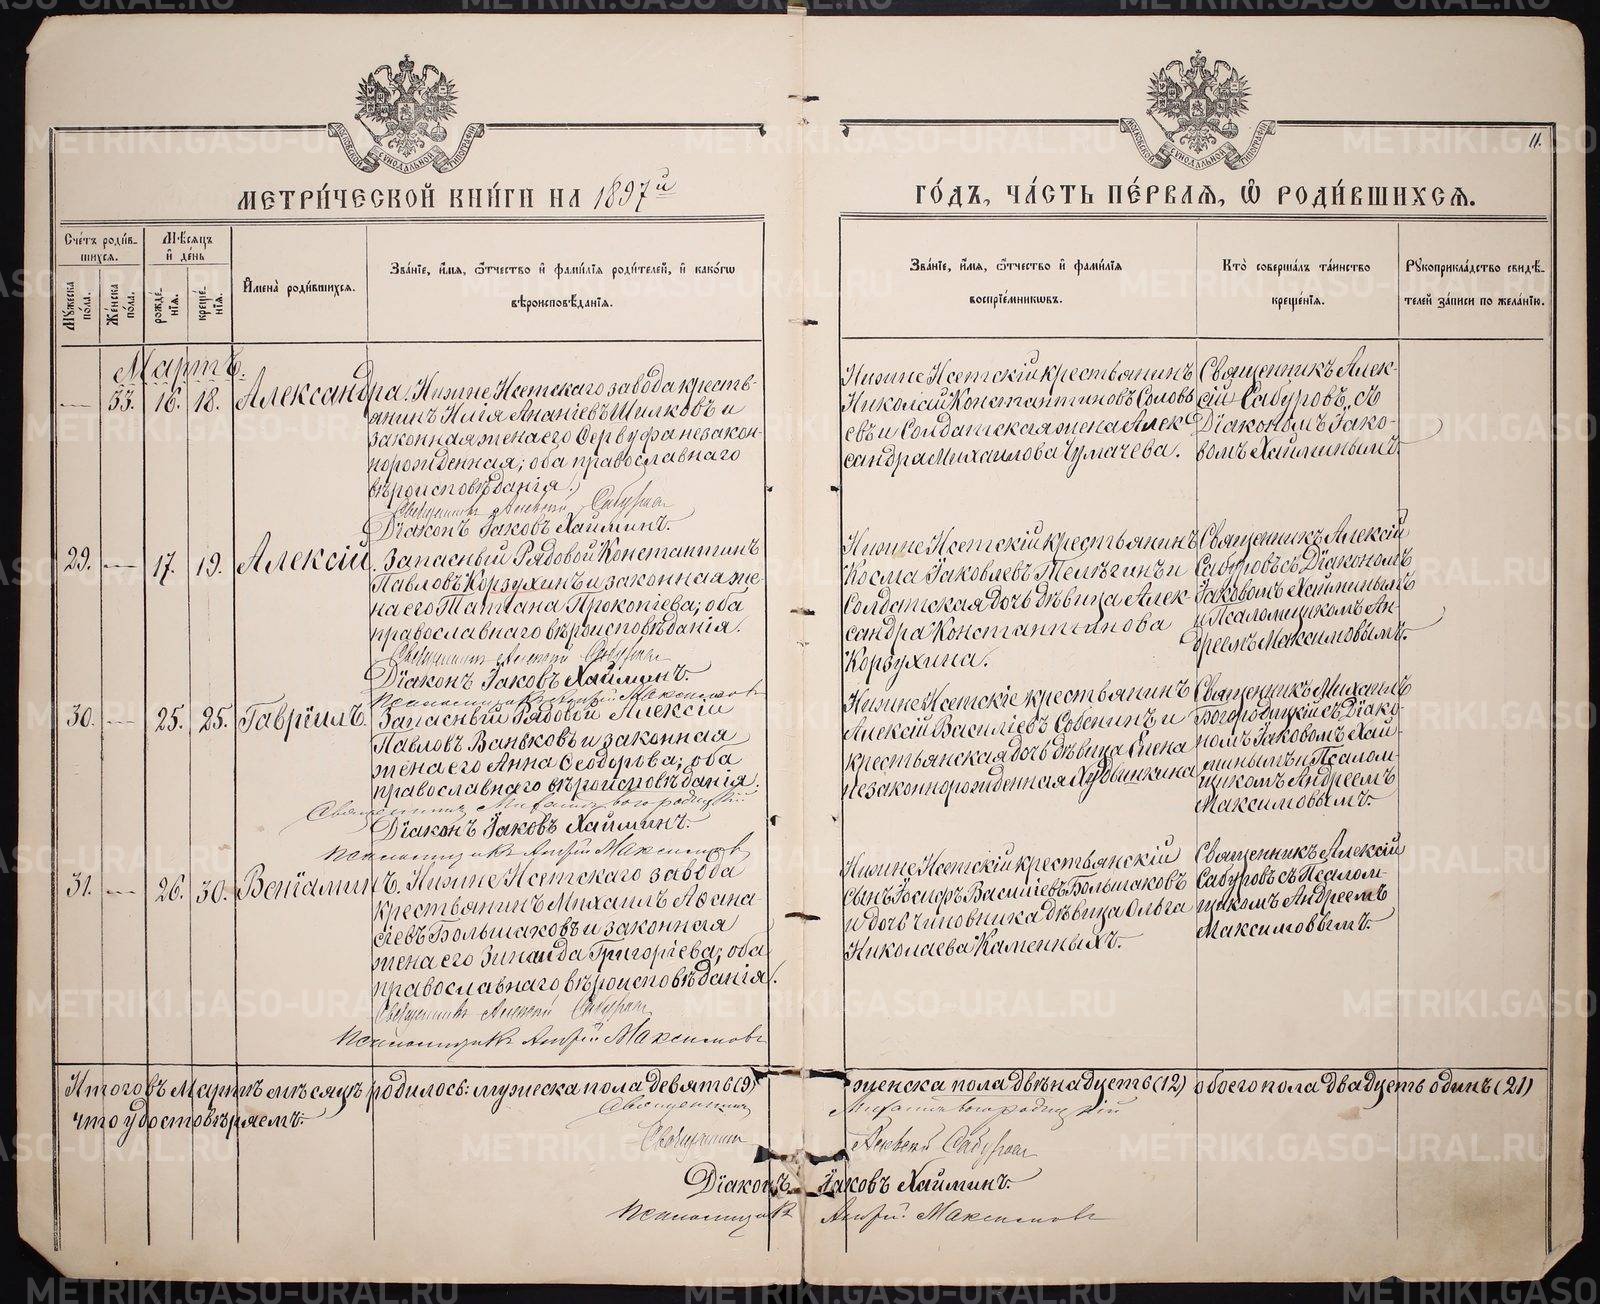 МЕТРИ́ЧЕСКОЙ КНИ́ГИ НА 1897й
ГО́ДЪ, ЧА́СТЬ ПЕ́РВАЯ, Ѽ РОДИ́ВШИХСЯ.
11.
МОСКОВСКОЙ СѴНОДАЛЬНОЙ ТИПОГРАФІИ
МОСКОВСКОЙ СѴНОДАЛЬНОЙ ТИПОГРАФІИ
Сче́тъ роди́в-
шихся.
Мꙋ́жеска
по́ла.
Же́нска
по́ла.
Мѣ́сяцъ
и҆ де́нь
рожде́-
нїя.
креще́-
нїя.
И҆мена̀ роди́вшихся.
Зва́нїе, и҆́мя, ѻ҆́тчество и҆ фами́лїя роди́телей, и҆ како́гѡ
вѣроисповѣ́данїя.
Зва́нїе, и҆́мя, ѻ҆́тчество и҆ фами́лїя
воспрїе́мникѡвъ.
Кто̀ соверша́лъ та́инство
креще́нїя.
Рꙋкоприкла́дство свидѣ́-
телей за́писи по жела́нїю.
Мартъ.
— 33. 16. 18. Александра. Нижне Исетскаго завода кресть-
янинъ Илія Ананіевъ Шилковъ и
законная жена его Сервуфа незакон-
норожденная; оба православнаго
вѣроисповѣданія.
Священникъ Алексій Сабуровъ
Діаконъ Іаковъ Хайминъ.
Нижне Исетскій крестьянинъ
Николай Константиновъ Соловь
евъ и Солдатская жена Алек
сандра Михаилова Чумачева.
Священникъ Алек-
сій Сабуровъ, съ
Діакономъ Іако-
вомъ Хайминымъ.
29. — 17. 19. Алексій. Запасный Рядовой Константинъ
Павловъ Корзухинъ и законная же-
на его Татіана Прокопіева; оба
православнаго вѣроисповѣданія.
Священникъ Алексій Сабуровъ
Діаконъ Іаковъ Хайминъ.
Псаломщикъ Андрей Максимовъ
Нижне Исетскій крестьянинъ
Косма Іаковлевъ Телѣгинъ и
Солдатская дочь дѣвица Алек
сандра Константинова
Корзухина.
Священникъ Алексій
Сабуровъ съ Діакономъ
Іаковомъ Хайминымъ
и Псаломщикомъ Ан-
дреемъ Максимовымъ.
30. — 25. 25. Гавріилъ. Запасный Рядовой Алексій
Павловъ Ваньковъ и законная
жена его Анна Ѳеодорова; оба
православнаго вѣроисповѣданія.
Священникъ Михаилъ Богородицкій
Діаконъ Іаковъ Хайминъ.
Псаломщикъ Андрей Максимовъ
Нижне Исетскіе крестьянинъ
Алексій Василіевъ Совенинъ и
крестьянская дочь дѣвица Елена
незаконнорожденная Худвинкина
Священникъ Михаилъ
Богородицкій съ Діако-
номъ Іаковомъ Хай-
минымъ и Псалом-
щикомъ Андреемъ
Максимовымъ.
31. — 26. 30. Веніаминъ. Нижне Исетскаго завода
крестьянинъ Михаилъ Аѳана-
сіевъ Большаковъ и законная
жена его Зинаида Григоріева; оба
православнаго вѣроисповѣданія.
Священникъ Алексій Сабуровъ
Псаломщикъ Андрей Максимовъ
Нижне Исетскій крестьянскій
сынъ Іосифъ Василіевъ Большаковъ
и дочь чиновника дѣвица Ольга
Николаева Каменныхъ.
Священникъ Алексій
Сабуровъ съ Псалом-
щикомъ Андреемъ
Максимовымъ.
Итого въ Мартѣ мѣсяцѣ родилось: мужеска пола девять (9) женска пола двѣнадцеть (12) обоего пола двадцеть одинъ (21)
что удостовѣряемъ:
Священникъ Михаилъ Богородицкій
Священникъ Алексій Сабуровъ
Діаконъ Іаковъ Хайминъ.
Псаломщикъ Андрей Максимовъ
METRIKI.GASO-URAL.RU